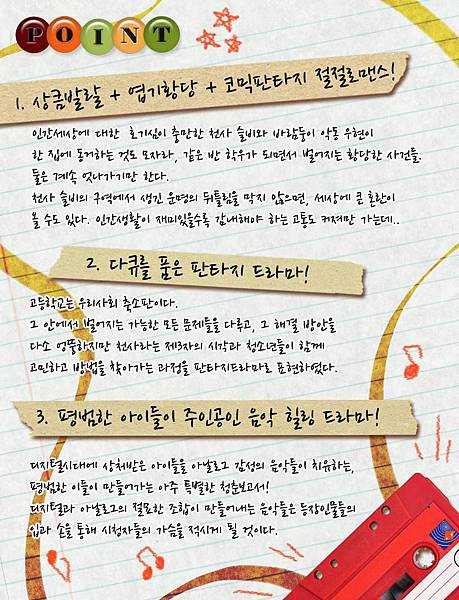 POINT
1. 상큼발랄 + 엽기황당 + 코믹판타지 절절로맨스!
인간세상에 대한 호기심이 충만한 천사 슬비와 바람둥이 악동 우현이
한 집에 동거하는 것도 모자라, 같은 반 학우가 되면서 벌어지는 황당한 사건들.
둘은 계속 엇나가기만 한다.
천사 슬비의 구역에서 생긴 운명의 뒤틀림을 막지 않으면, 세상에 큰 혼란이
올 수도 있다. 인간생활이 재미있을수록 감내해야 하는 고통도 커져만 가는데..
2. 다큐를 품은 판타지 드라마!
고등학교는 우리사회 축소판이다.
그 안에서 벌어지는 가능한 모든 문제들을 다루고, 그 해결 방안을
다소 엉뚱하지만 천사라는 제3자의 시각과 청소년들이 함께
고민하고 방법을 찾아가는 과정을 판타지드라마로 표현하였다.
3. 평범한 아이들이 주인공인 음악 힐링 드라마!
디지털시대에 상처받은 아이들을 아날로그 감성의 음악들이 치유하는,
평범한 이들이 만들어가는 아주 특별한 청춘보고서!
디지털과 아날로그의 절묘한 조합이 만들어내는 음악들은 등장인물들의
입과 손을 통해 시청자들의 가슴을 적시게 될 것이다.